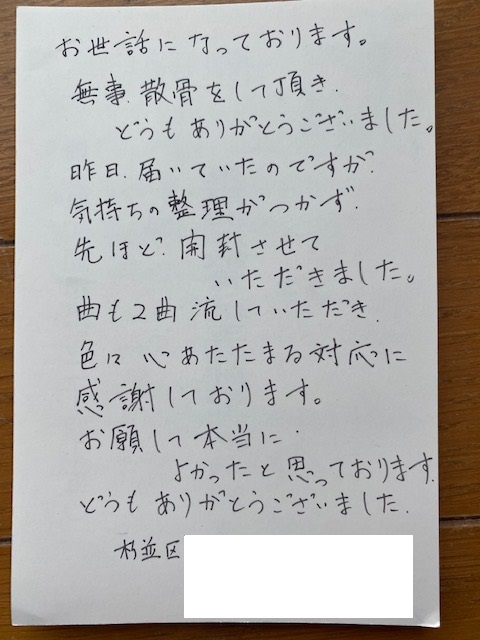 お世話になっております。
無事、散骨をして頂き、
どうもありがとうございました。
昨日、届いていたのですが、
気持ちの整理がつかず、
先ほど、開封させて
いただきました。
曲も2曲流していただき、
色々心あたたまる対応に
感謝しております。
お願して本当に、
よかったと思っております。
どうもありがとうございました。
杉並区